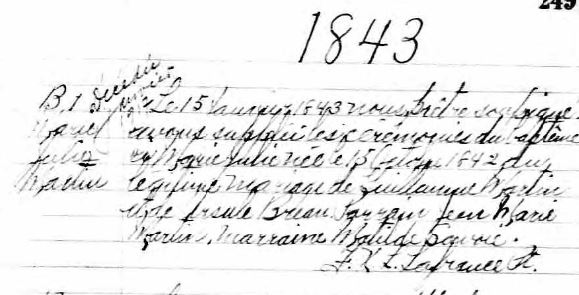 249
1843
B. 1
Marie
Julie
Martin
Le 15 1843 nous Prêtre soussigné
avons suppléé les cérémonies du baptême
à Marie Julie née le 15 1842 du
légitime mariage de Guillaume Martin
et de Ursule Parrain Jean Marie
Martin. Marraine Matilde
F. X. L. Lafrance Pt.